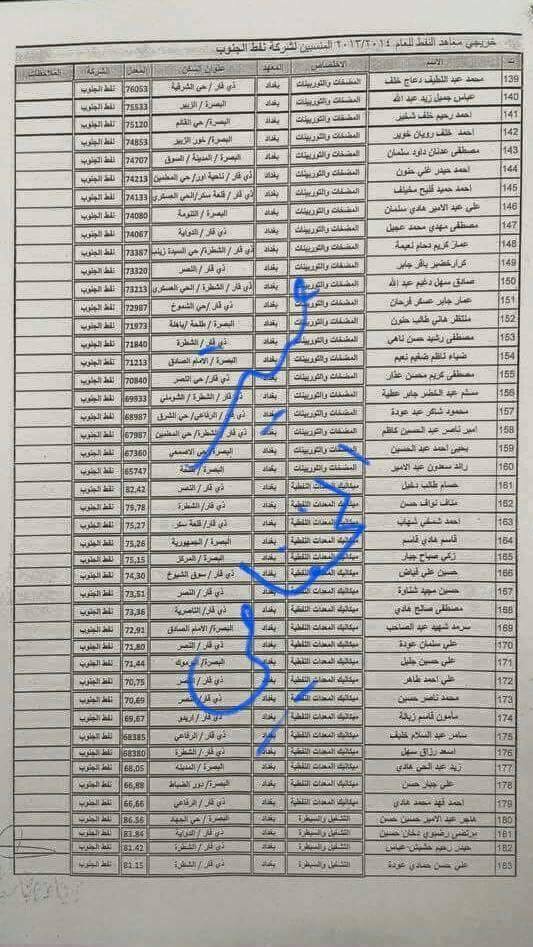 خريجي معاهد النفط للعام ٢٠١٣/٢٠١٤ المنسبين لشركة نفط الجنوب
ت الاسم الاختصاص المعهد عنوان السكن المعدل الشركة الملاحظات
139 محمد عبد اللطيف دعاج خلف المضخات والتوربينات بغداد ذي قار / حي الشرقية 76053 نفط الجنوب
140 عباس جميل زيد عبد الله المضخات والتوربينات بغداد البصرة / الزبير 75533 نفط الجنوب
141 احمد رحيم خلف شخير المضخات والتوربينات بغداد البصرة / حي القائم 75120 نفط الجنوب
142 احمد خلف رويان خوير المضخات والتوربينات بغداد البصرة / خور الزبير 74853 نفط الجنوب
143 مصطفى عدنان داود سلمان المضخات والتوربينات بغداد البصرة / المدينة / السوق 74707 نفط الجنوب
144 احمد حيدر غني حنون المضخات والتوربينات بغداد ذي قار / ناحية اور / حي المعلمين 74213 نفط الجنوب
145 احمد حميد فليح مخيلف المضخات والتوربينات بغداد ذي قار / قلعة سكر / الحي العسكري 74133 نفط الجنوب
146 علي عبد الامير هادي سلمان المضخات والتوربينات بغداد البصرة / التنومة 74080 نفط الجنوب
147 مصطفى مهدي محمد عجيل المضخات والتوربينات بغداد ذي قار / الدواية 74067 نفط الجنوب
148 عمار كريم دحام نعيمة المضخات والتوربينات بغداد ذي قار / الشطرة / حي السيدة زينب 73387 نفط الجنوب
149 كرار خضير باقر جابر المضخات والتوربينات بغداد ذي قار / النصر 73320 نفط الجنوب
150 صادق سهل دغيم عبد الله المضخات والتوربينات بغداد ذي قار / الشطرة / الحي العسكري 73213 نفط الجنوب
151 عمار جابر عسكر فرحان المضخات والتوربينات بغداد ذي قار / حي الشموخ 72987 نفط الجنوب
152 منتظر هاني طالب حنون المضخات والتوربينات بغداد البصرة / طلحة / باهلة 71973 نفط الجنوب
153 مصطفى رشيد محسن ناهي المضخات والتوربينات بغداد ذي قار / الشطرة 71840 نفط الجنوب
154 ضياء ناظم ضغيم نعيم المضخات والتوربينات بغداد البصرة / الامام الصادق 71213 نفط الجنوب
155 مصطفى كريم محسن عذار المضخات والتوربينات بغداد ذي قار / حي النصر 70840 نفط الجنوب
156 مسلم عبد الخضر جابر عطية المضخات والتوربينات بغداد ذي قار / الشطرة / الشوملي 69933 نفط الجنوب
157 محمود شاكر عبد عودة المضخات والتوربينات بغداد ذي قار / الرفاعي / حي الشرق 68987 نفط الجنوب
158 امير ناصر عبد الحسين كاظم المضخات والتوربينات بغداد ذي قار / الشطرة / حي المعلمين 67987 نفط الجنوب
159 يحيى احمد عبد الحسين المضخات والتوربينات بغداد البصرة / حي الاصمعي 67360 نفط الجنوب
160 رائد سعدون عبد الامير المضخات والتوربينات بغداد البصرة / 65747 نفط الجنوب
161 حسام طالب دخيل ميكانيك المعدات النفطية بغداد ذي قار / النصر 82,42 نفط الجنوب
162 مناف نواف حسن ميكانيك المعدات النفطية بغداد ذي قار / الشطرة 79,78 نفط الجنوب
163 احمد شمخي شهاب ميكانيك المعدات النفطية بغداد ذي قار / قلعة سكر 75,27 نفط الجنوب
164 قاسم هادي قاسم ميكانيك المعدات النفطية بغداد البصرة / الجمهورية 75,26 نفط الجنوب
165 زكي صباح جبار ميكانيك المعدات النفطية بغداد البصرة / المركز 75,15 نفط الجنوب
166 حسين علي فياض ميكانيك المعدات النفطية بغداد ذي قار / سوق الشيوخ 74,30 نفط الجنوب
167 حسين مجيد شناوة ميكانيك المعدات النفطية بغداد ذي قار / النصر 73,51 نفط الجنوب
168 مصطفى صالح هادي ميكانيك المعدات النفطية بغداد ذي قار / الناصرية 73,36 نفط الجنوب
169 سرمد شهيد عبد الصاحب ميكانيك المعدات النفطية بغداد البصرة / الامام الصادق 72,91 نفط الجنوب
170 علي سلمان عودة ميكانيك المعدات النفطية بغداد ذي قار / النصر 71,80 نفط الجنوب
171 علي حسين جليل ميكانيك المعدات النفطية بغداد البصرة / اليرموك 71,44 نفط الجنوب
172 علي احمد طاهر ميكانيك المعدات النفطية بغداد ذي قار / النصر 70,75 نفط الجنوب
173 محمد ناصر حسين ميكانيك المعدات النفطية بغداد ذي قار / النصر 70,69 نفط الجنوب
174 مأمون قاسم زبالة ميكانيك المعدات النفطية بغداد ذي قار / اريدو 69,67 نفط الجنوب
175 سامر عبد السلام خليف ميكانيك المعدات النفطية بغداد ذي قار / الرفاعي 68385 نفط الجنوب
176 اسعد رزاق سهل ميكانيك المعدات النفطية بغداد ذي قار / الشطرة 68380 نفط الجنوب
177 زيد عبد الحي هادي ميكانيك المعدات النفطية بغداد البصرة / المدينة 68,05 نفط الجنوب
178 علي جبار حسن ميكانيك المعدات النفطية بغداد البصرة / دور الضباط 66,88 نفط الجنوب
179 احمد فهد محمد هادي ميكانيك المعدات النفطية بغداد ذي قار / الرفاعي 66,66 نفط الجنوب
180 هاجر عبد الامير حسين حسن التشغيل والسيطرة بغداد البصرة / حي الجهاد 86.56 نفط الجنوب
181 مرتضى رضيوي دخان حسين التشغيل والسيطرة بغداد ذي قار / الدواية 83.84 نفط الجنوب
182 حيدر رحيم حشيش عباس التشغيل والسيطرة بغداد ذي قار / الشطرة 81.42 نفط الجنوب
183 علي حسن حمادي عودة التشغيل والسيطرة بغداد ذي قار / الشطرة 81.15 نفط الجنوب